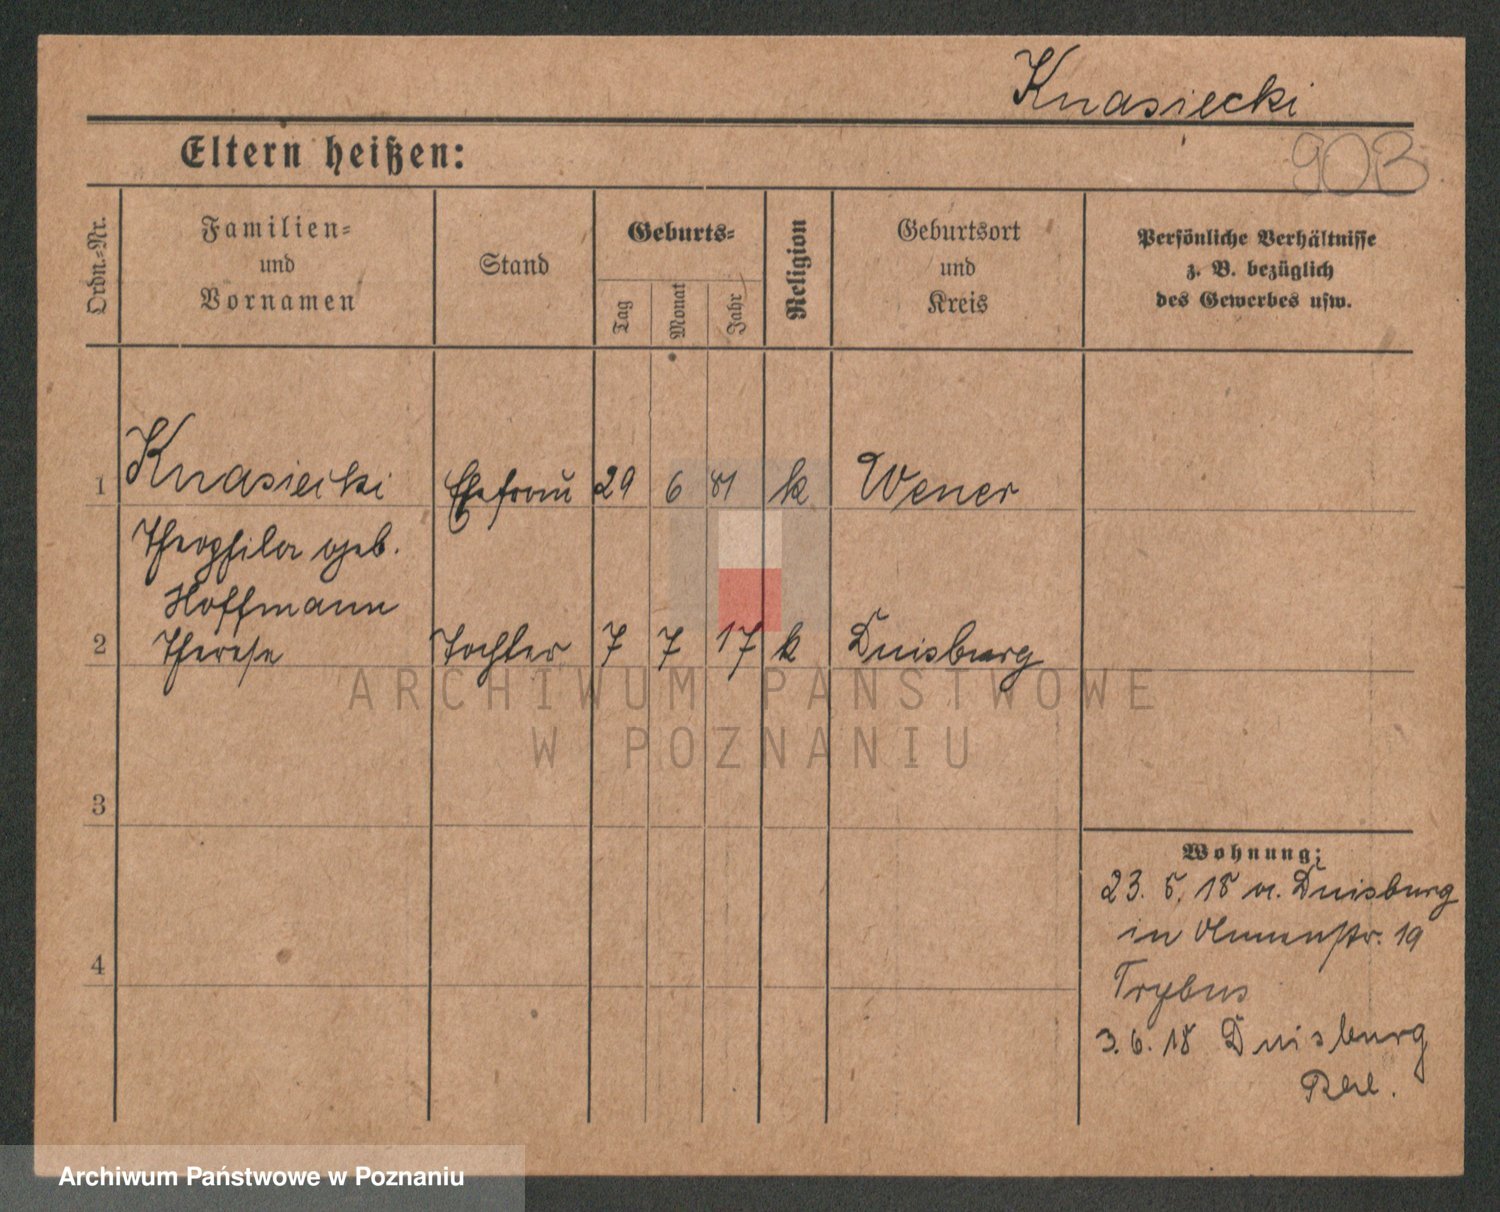 Knasiecki
903
Eltern heißen:
Ordn.-Nr.
Familien-
und
Vornamen
Stand
Geburts-
Tag
Monat
Jahr
Religion
Geburtsort
und
Kreis
Persönliche Verhältnisse
z. B. bezüglich
des Gewerbes usw.
1 Knasiecki Ehefrau 29 6 81 k Wener
Theophila geb.
Hoffmann
2 Therese Tochter 7 7 17 k Duisburg
ARCHIWUM PAŃSTWOWE
W POZNANIU
3
4
Wohnung:
23. 5. 18 v. Duisburg
in 19
Trybus
3. 6. 18 Duisburg
Archiwum Państwowe w Poznaniu